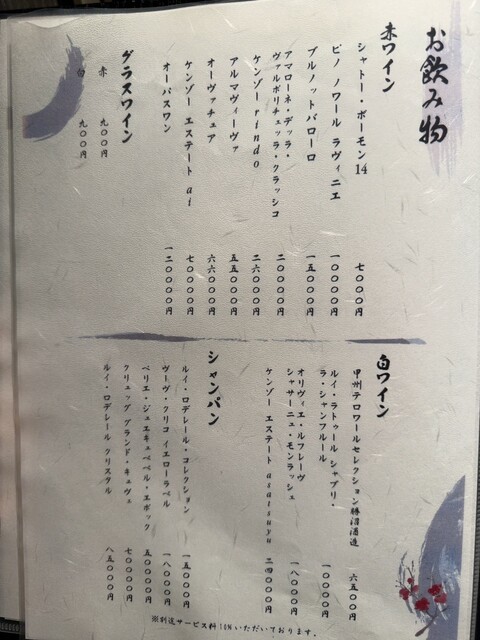 お飲み物
赤ワイン
シャトー・ボーモン14 七〇〇〇円
ピノ ノワール ラヴィニエ 一〇〇〇〇円
ブルノットバローロ 一五〇〇〇円
アマローネ・デッラ・
ヴァルポリチェッラ・クラッシコ 二〇〇〇〇円
ケンゾーrindo 二六〇〇〇円
アルマヴィーヴァ 五五〇〇〇円
オーヴァチュア 六六〇〇〇円
ケンゾー エステート ai 七〇〇〇〇円
オーパスワン 一二〇〇〇〇円
グラスワイン
赤 九〇〇円
白 九〇〇円
白ワイン
甲州テロワールセレクション勝沼酒造 六五〇〇円
ルイ・ラトゥール シャブリ・
ラ・シャンフルール 一〇〇〇〇円
オリヴィエ・ルフレーヴ
シャサーニュ・モンラッシェ 一八〇〇〇円
ケンゾー エステート asatsuyu 二四〇〇〇円
シャンパン
ルイ・ロデレール・コレクション 一五〇〇〇円
ヴーヴ・クリコ イエローラベル 一八〇〇〇円
ペリエ・ジュエキュベベル・エポック 五〇〇〇〇円
クリュッグ グランド・キュヴェ 七〇〇〇〇円
ルイ・ロデレール クリスタル 八五〇〇〇円
※別途サービス料10%いただいております。